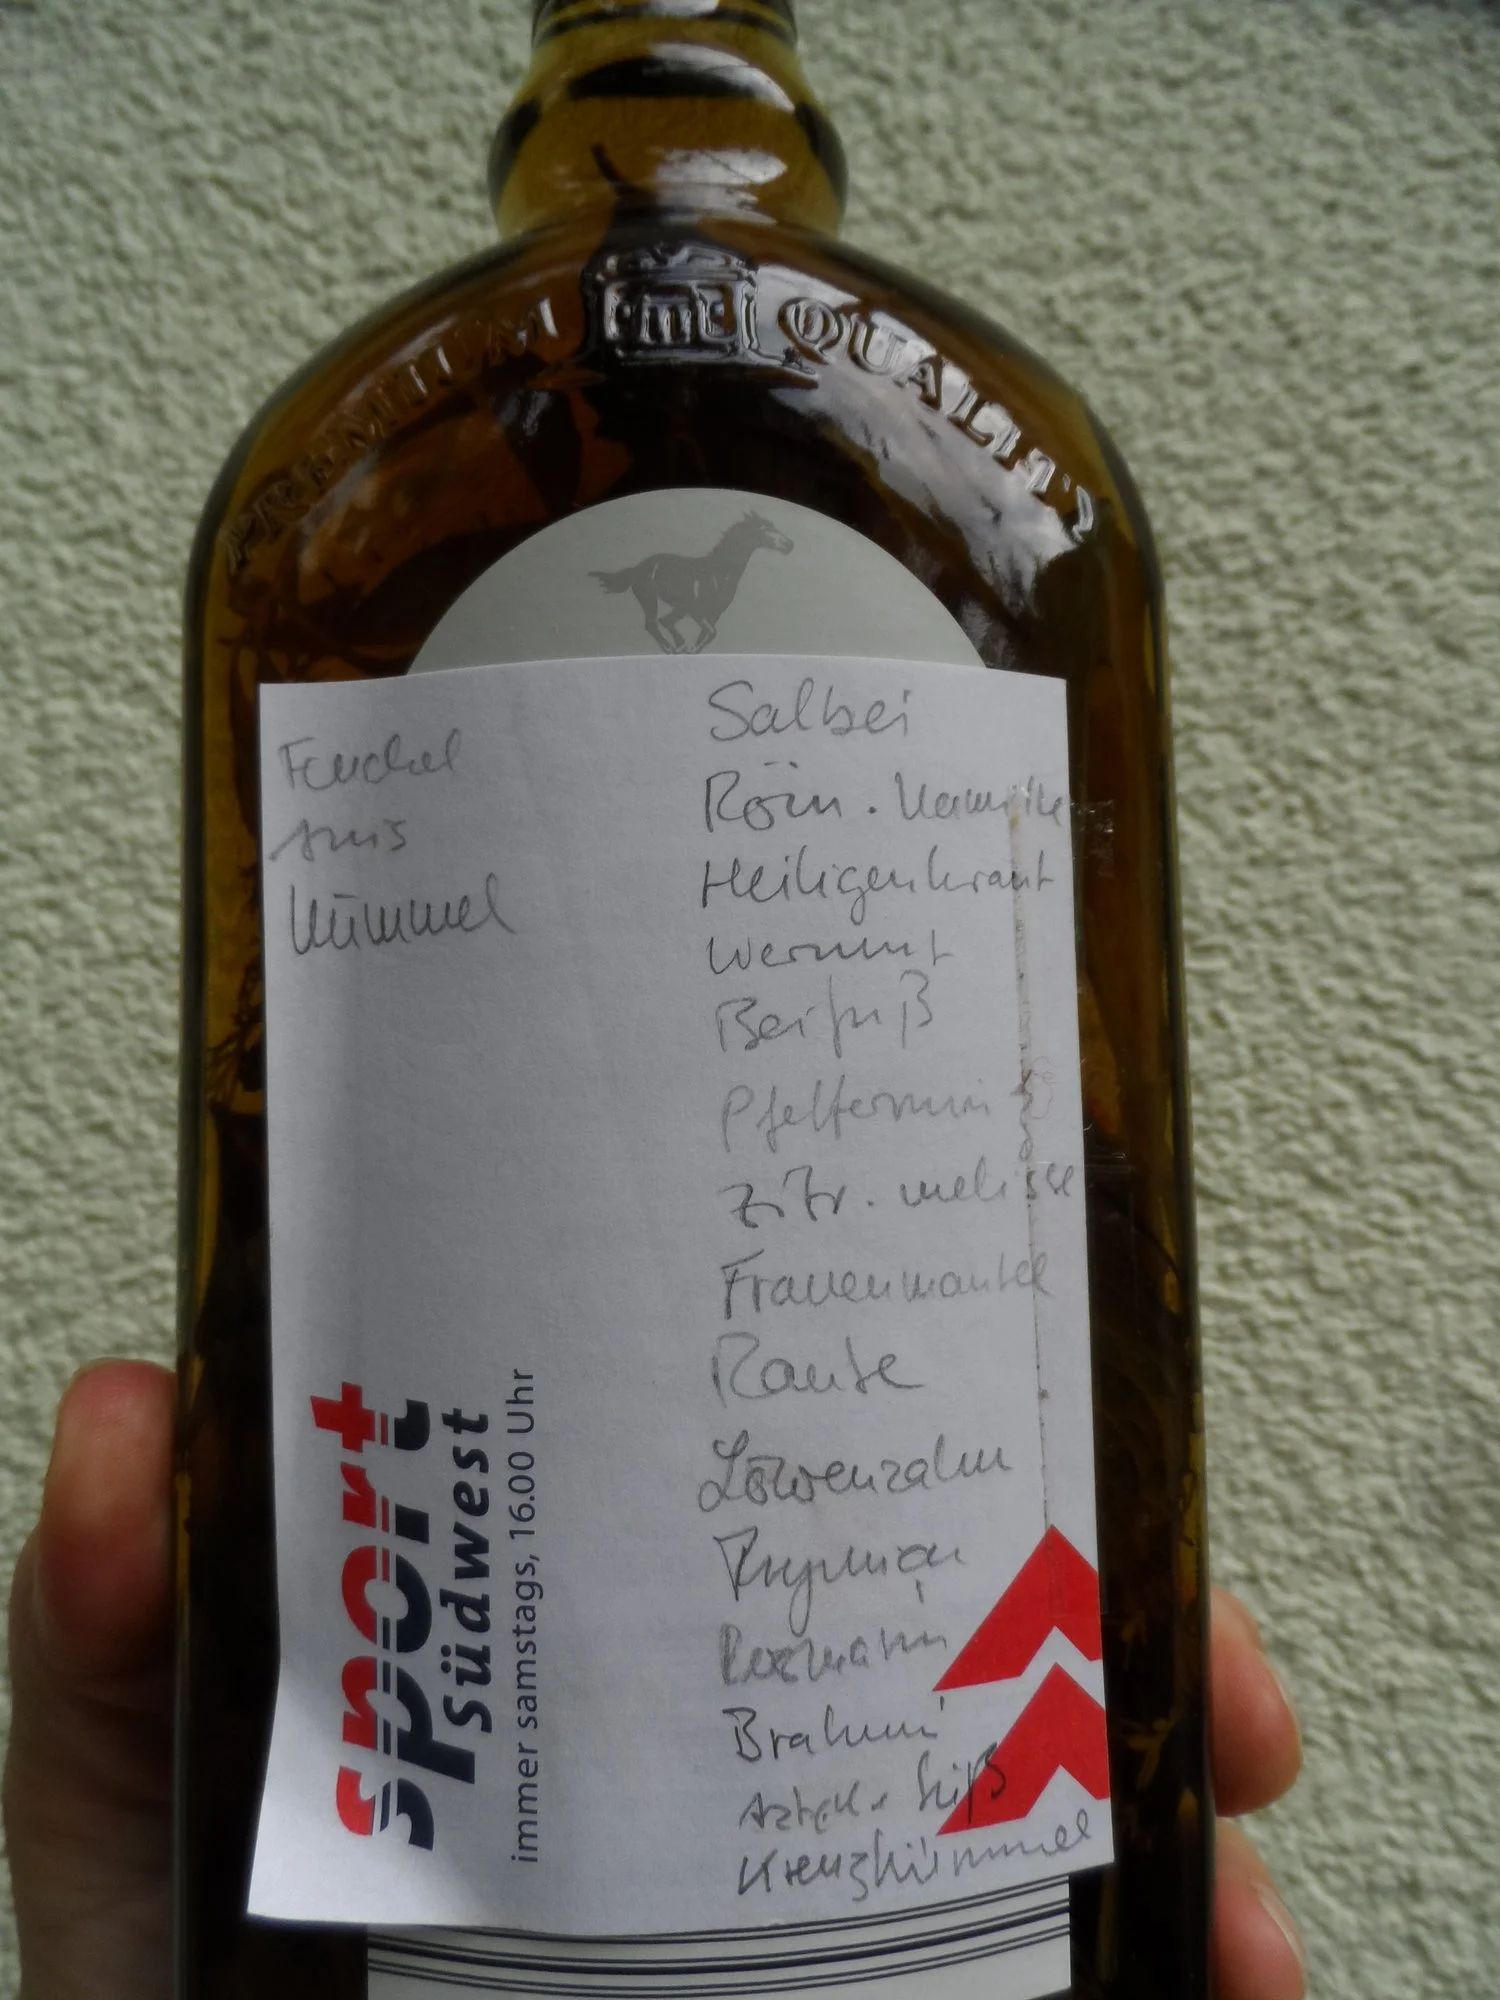 PREMIUM QUALITY
Fenchel
Anis
Kümmel
Salbei
Röm. Kamille
Heiligenkraut
Wermut
Beifuß
Pfefferminz
Zitr. melisse
Frauenmantel
Raute
Löwenzahn
Thymian
Rosmarin
Brahmi
Aztek. Süß
Kreuzkümmel
sport
südwest
immer samstags, 16.00 Uhr